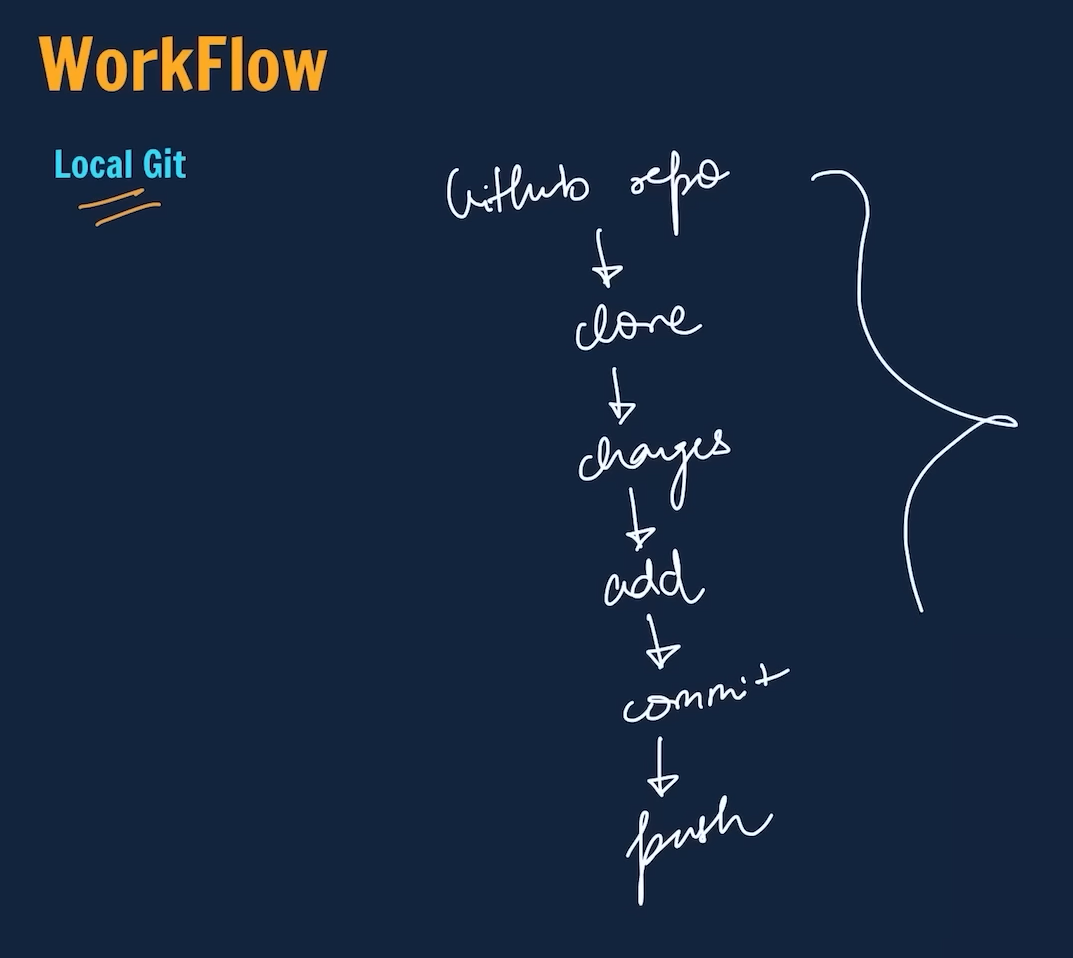 WorkFlow
Local Git
Github repo
clone
changes
add
commit
push